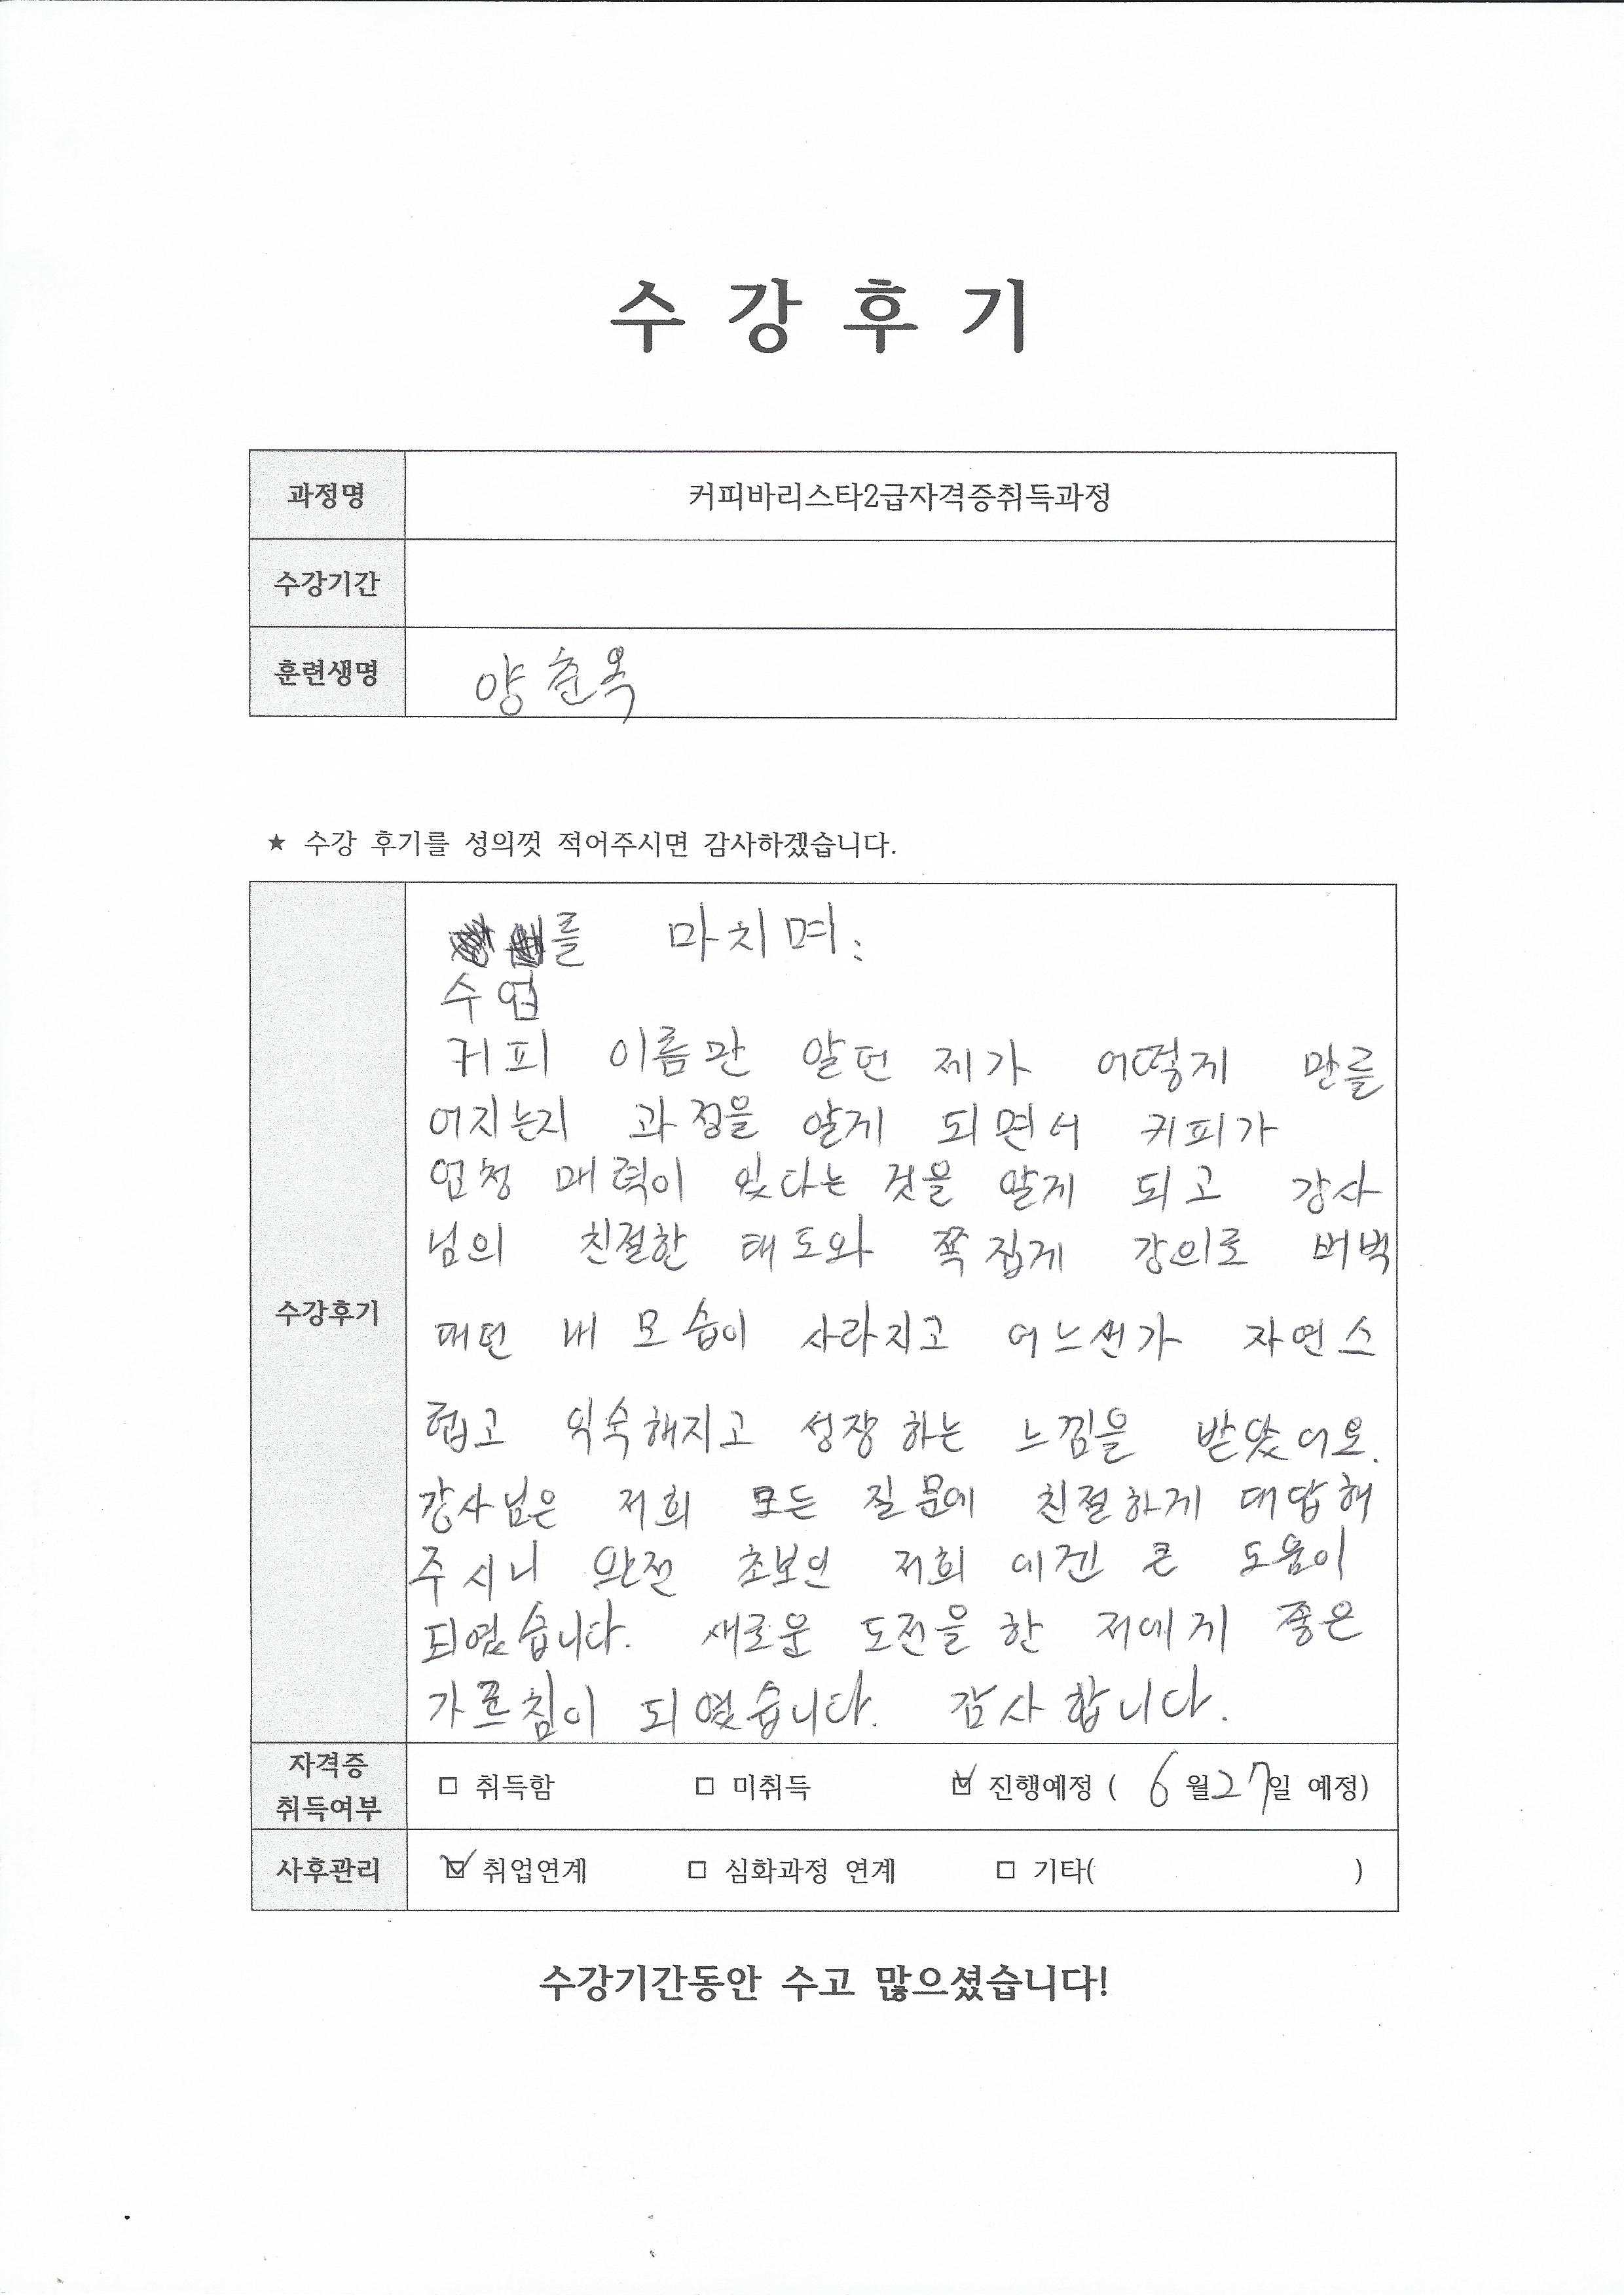 수 강 후 기
과정명 커피바리스타2급자격증취득과정
수강기간
훈련생명 양춘옥
★ 수강 후기를 성의껏 적어주시면 감사하겠습니다.
수강후기
를 마치며:
수업
커피 이름만 알던 제가 어떻게 만들
어지는지 과정을 알게 되면서 커피가
엄청 매력이 있다는 것을 알게 되고 강사
님의 친절한 태도와 쪽집게 강의로 버벅
대던 내 모습이 사라지고 어느센가 자연스
럽고 익숙해지고 성장하는 느낌을 받았어요.
강사님은 저희 모든 질문에 친절하게 대답해
주시니 완전 초보인 저희에겐 큰 도움이
되였습니다. 새로운 도전을 한 저에게 좋은
가르침이 되였습니다. 감사합니다.
자격증
취득여부 □ 취득함 □ 미취득 ☑ 진행예정 ( 6 월 27일 예정)
사후관리 ☑ 취업연계 □ 심화과정 연계 □ 기타( )
수강기간동안 수고 많으셨습니다!